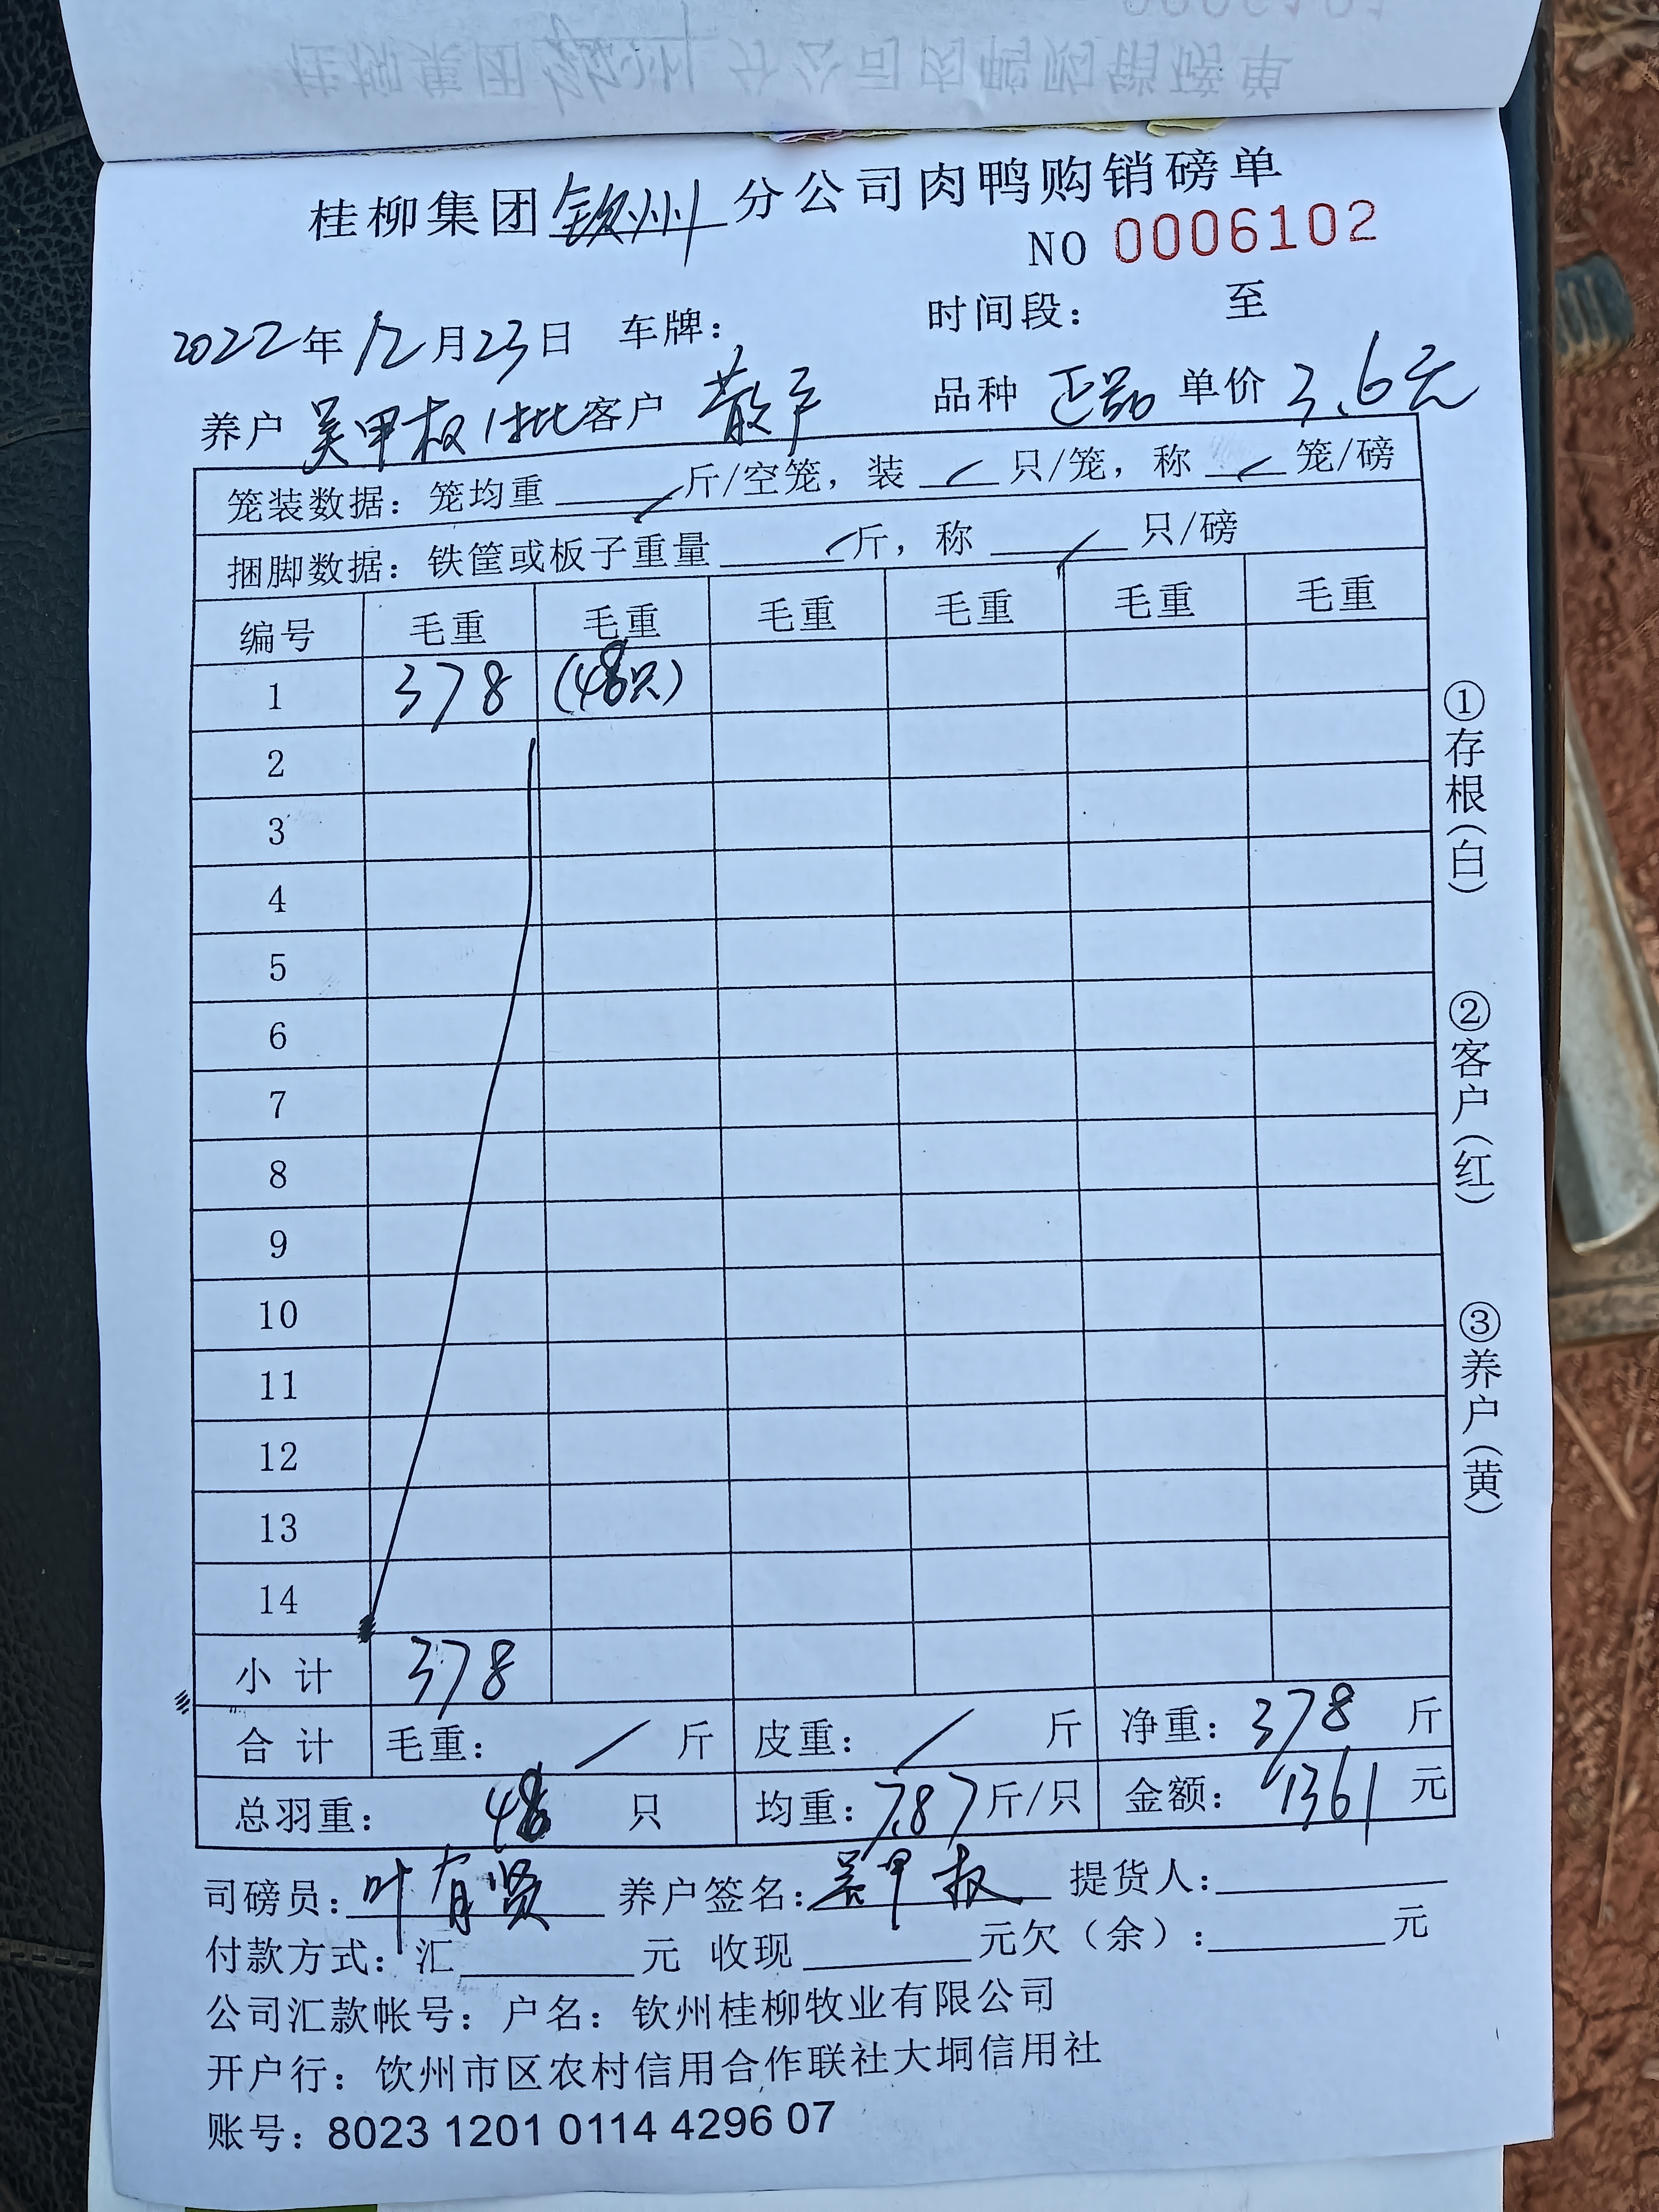 桂柳集团钦州分公司肉鸭购销磅单
NO 0006102
2022年12月23日 车牌： 时间段： 至
养户 吴甲权1批 客户 散户 品种 正品 单价 3.6元
笼装数据：笼均重 / 斤/空笼，装 / 只/笼，称 / 笼/磅
捆脚数据：铁筐或板子重量 / 斤，称 / 只/磅
编号 毛重 毛重 毛重 毛重 毛重 毛重
1 378 (48只)
2
3
4
5
6
7
8
9
10
11
12
13
14
小计 378
合计 毛重： / 斤 皮重： / 斤 净重：378 斤
总羽重： 48 只 均重：7.87斤/只 金额：1361 元
司磅员：叶有贤 养户签名：吴甲权 提货人：
付款方式：汇 元 收现 元欠（余）： 元
公司汇款帐号：户名：钦州桂柳牧业有限公司
开户行：钦州市区农村信用合作联社大垌信用社
账号：8023 1201 0114 4296 07
①存根（白）
②客户（红）
③养户（黄）